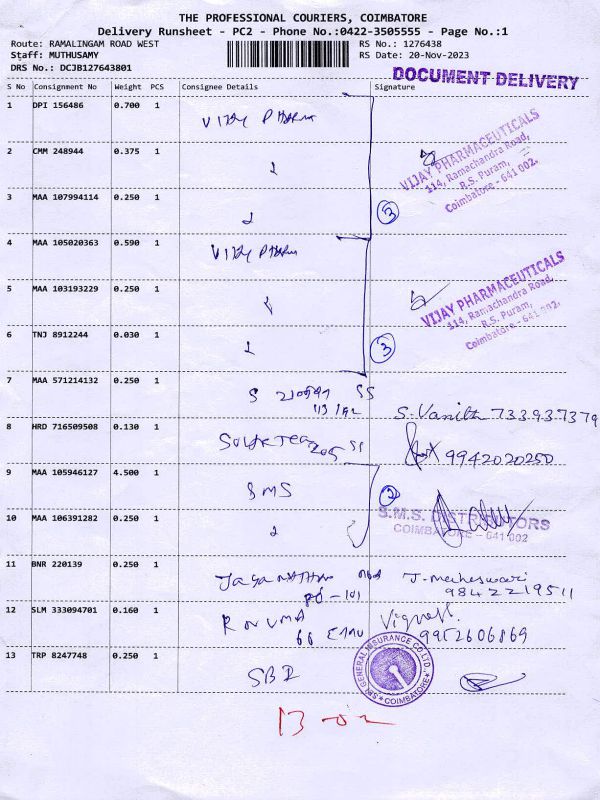 THE PROFESSIONAL COURIERS, COIMBATORE
Delivery Runsheet - PC2 - Phone No.:0422-3505555 - Page No.:1
Route: RAMALINGAM ROAD WEST RS No.: 1276438
Staff: MUTHUSAMY RS Date: 20-Nov-2023
DRS No.: DCJB127643801
DOCUMENT DELIVERY
S No Consignment No Weight PCS Consignee Details Signature
1 DPI 156486 0.700 1 VIJAY PHARMA
VIJAY PHARMACEUTICALS
114, Ramachandra Road,
R.S. Puram,
Coimbatore - 641 002.
2 CMM 248944 0.375 1
3 MAA 107994114 0.250 1 3
4 MAA 105020363 0.590 1 VIJAY PHARMA
VIJAY PHARMACEUTICALS
114, Ramachandra Road,
R.S. Puram,
Coimbatore - 641 002.
5 MAA 103193229 0.250 1
6 TNJ 8912244 0.030 1 3
7 MAA 571214132 0.250 1 S SS
S. Vanitha 733937379
8 HRD 716509508 0.130 1 205 SS 9942020250
9 MAA 105946127 4.500 1 SMS 2
S.M.S. DISTRIBUTORS
COIMBATORE - 641 002
10 MAA 106391282 0.250 1
11 BNR 220139 0.250 1 J. Maheswari
9842219511
12 SLM 333094701 0.160 1 66 Vignesh.
9952606869
13 TRP 8247748 0.250 1 SBI
SBI GENERAL INSURANCE CO. LTD., COIMBATORE
13